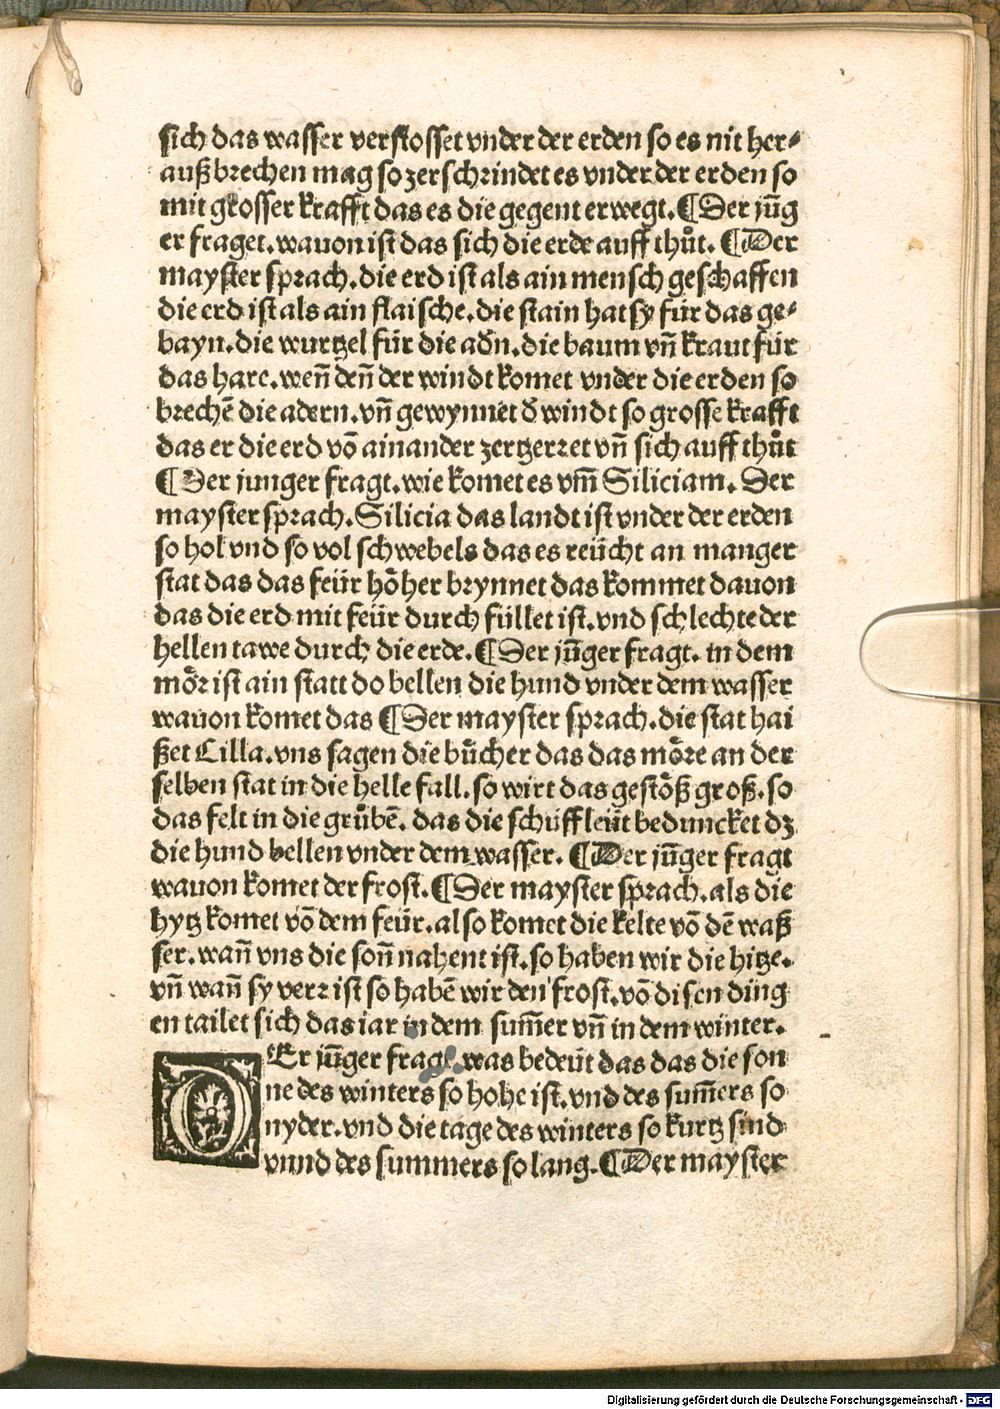 sich das wasser verstosset vnder der erden so es nit her⸗
außbrechen mag so zerschrindet es vnder der erden so
mit grosser krafft das es die gegent erwegt. ¶ Der jūg
er fraget. wauon ist das sich die erde auff thůt. ¶ Der
mayster sprach. die erd ist als ain mensch geschaffen
die erd ist als ain flaische. die stain hat sy für das ge⸗
bayn. die wurtzel für die adn̄. die baum vn̄ kraut für
das hare. wen̄ den̄ der windt komet vnder die erden so
brechē die adern. vn̄ gewynnet d̕ windt so grosse krafft
das er die erd vō ainander zertzerret vn̄ sich auff thůt
¶ Der junger fragt. wie komet es vm̄ Siliciam. Der
mayster sprach. Silicia das landt ist vnder der erden
so hol vnd so vol schwebels das es reücht an manger
stat das das feür hoͤher brynnet das kommet dauon
das die erd mit feür durch füllet ist. vnd schlechte der
hellen tawe durch die erde. ¶ Der jūger fragt. in dem
moͤr ist ain statt do bellen die hund vnder dem wasser
wauon komet das ¶ Der mayster sprach. die stat hai
ßet Cilla. vns sagen die buͤcher das das moͤre an der
selben stat in die helle fall. so wirt das gestoͤß groß. so
das felt in die grůbē. das die schiffleüt beduncket dz
die hund bellen vnder dem wasser. ¶ Der jūger fragt
wauon komet der frost. ¶ Der mayster sprach. als die
hytz komet vō dem feür. also komet die kelte vō dē waß
ser. wan̄ vns die son̄ nahent ist. so haben wir die hitze.
vn̄ wan̄ sy verr ist so habē wir den frost. vō disen ding
en tailet sich das iar in dem sum̄er vn̄ in dem winter.
DEr jūger fragt was bedeüt das das die son
ne des winters so hohe ist. vnd des sum̄ers so
nyder. vnd die tage des winters so kurtz sind
vnnd des summers so lang. ¶ Der mayster
Digitalisierung gefördert durch die Deutsche Forschungsgemeinschaft - DFG